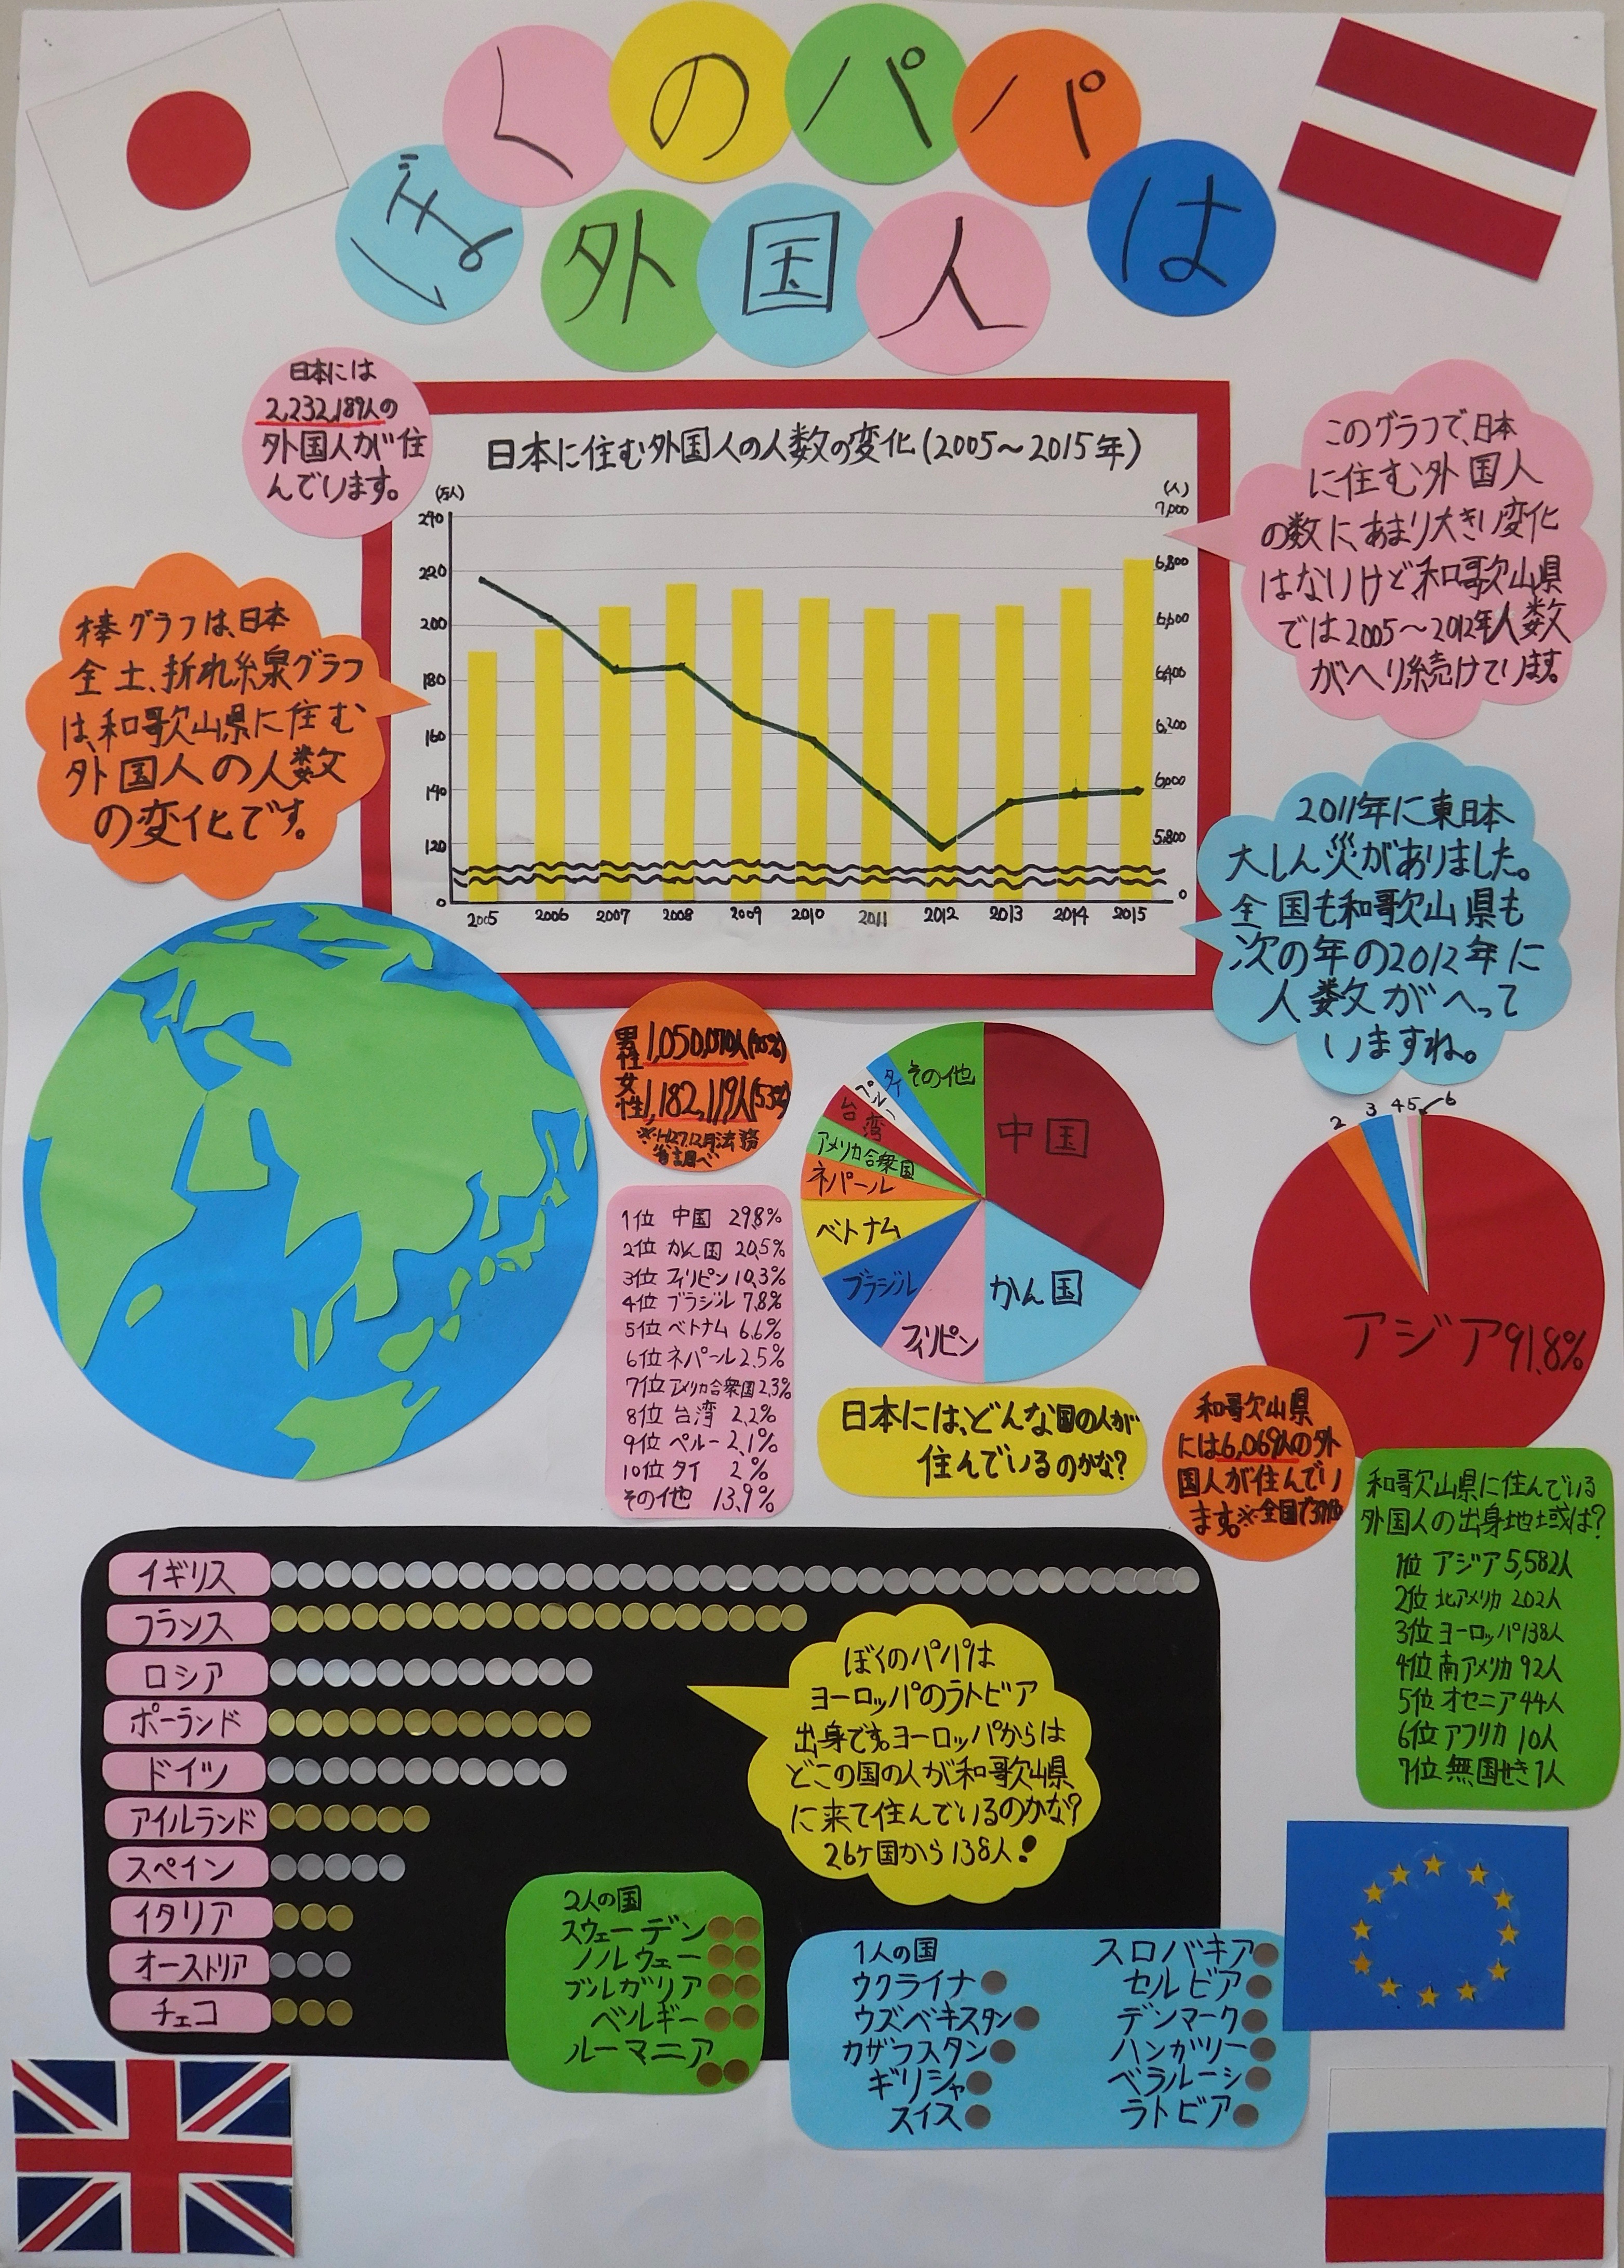 ぼくのパパは
外国人
日本には
2,232,189人の
外国人が住
んでいます。
日本に住む外国人の人数の変化(2005～2015年)
(万人)
240
220
200
180
160
140
120
0
(人)
7,000
6,800
6,600
6,400
6,200
6,000
5,800
0
2005 2006 2007 2008 2009 2010 2011 2012 2013 2014 2015
このグラフで、日本
に住む外国人
の数に、あまり大きい変化
はないけど和歌山県
では2005～2012年人数
がへり続けています。
棒グラフは、日本
全土、折れ線グラフ
は、和歌山県に住む
外国人の人数
の変化です。
2011年に東日本
大しん災がありました。
全国も和歌山県も
次の年の2012年に
人数がへって
いますね。
男性 1,050,070人
女性 1,182,119人(53%)
※H27.12月法務
省調べ
1位 中国 29.8%
2位 かん国 20.5%
3位 フィリピン 10.3%
4位 ブラジル 7.8%
5位 ベトナム 6.6%
6位 ネパール 2.5%
7位 アメリカ合衆国 2.3%
8位 台湾 2.2%
9位 ペルー 2.1%
10位 タイ 2%
その他 13.9%
中国
かん国
フィリピン
ブラジル
ベトナム
ネパール
アメリカ合衆国
台湾
ペルー
タイ
その他
日本には、どんな国の人が
住んでいるのかな?
2 3 4 5 6
アジア91.8%
和歌山県
には6,069人の外
国人が住んでい
ます。※全国で
和歌山県に住んでいる
外国人の出身地域は?
1位 アジア 5,582人
2位 北アメリカ 202人
3位 ヨーロッパ138人
4位 南アメリカ 92人
5位 オセニア 44人
6位 アフリカ 10人
7位 無国せき 1人
イギリス
フランス
ロシア
ポーランド
ドイツ
アイルランド
スペイン
イタリア
オーストリア
チェコ
ぼくのパパは
ヨーロッパのラトビア
出身です。ヨーロッパからは
どこの国の人が和歌山県
に来て住んでいるのかな?
26ヶ国から138人!
2人の国
スウェーデン
ノルウェー
ブルガリア
ベルギー
ルーマニア
1人の国
ウクライナ
ウズベキスタン
カザフスタン
ギリシャ
スイス
スロバキア
セルビア
デンマーク
ハンガリー
ベラルーシ
ラトビア